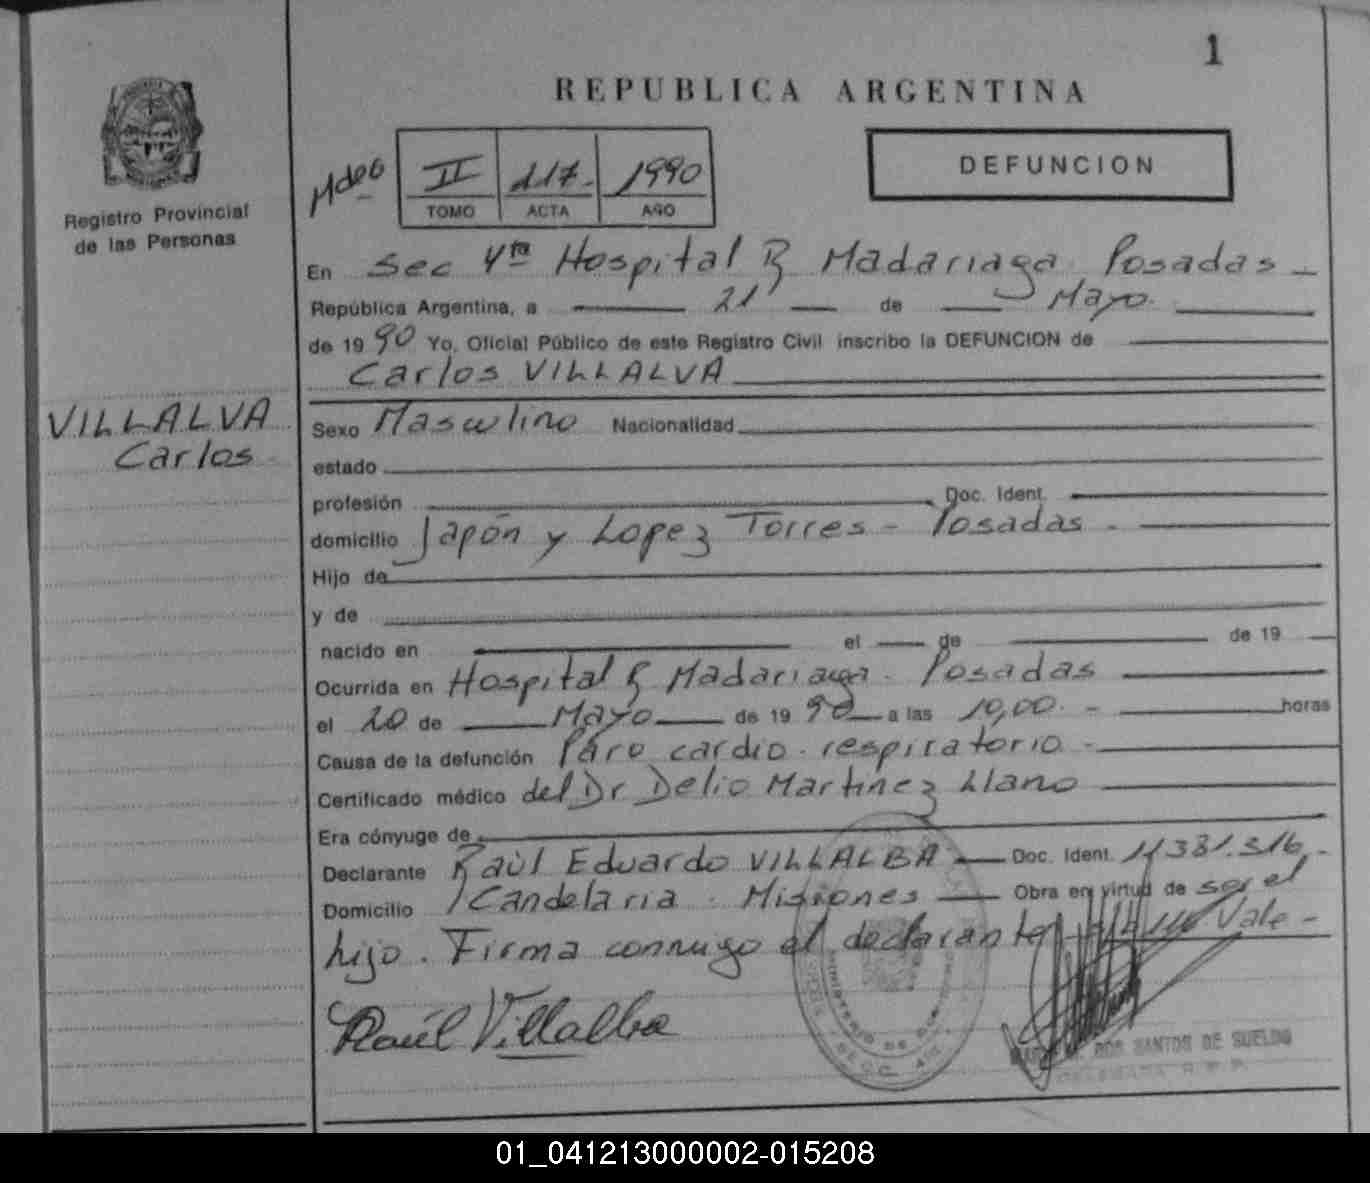 1
REPUBLICA ARGENTINA
DEFUNCION
Registro Provincial
de las Personas
II 117. 1990
TOMO ACTA AÑO
En Sec 4ta Hospital R Madariaga Posadas -
República Argentina, a 21 de Mayo.
de 19 90 Yo, Oficial Público de este Registro Civil inscribo la DEFUNCION de
Carlos VILLALVA
VILLALVA
Carlos
Sexo Masculino Nacionalidad
estado
profesión Doc. Ident.
domicilio Japón y Lopez Torres - Posadas -
Hijo de
y de
nacido en el de de 19
Ocurrida en Hospital R Madariaga. Posadas
el 20 de Mayo de 19 90 a las 10,00. - horas
Causa de la defunción Paro cardio. respiratorio -
Certificado médico del Dr Delio Martinez Llano
Era cónyuge de
Declarante Raúl Eduardo VILLALBA Doc. Ident. 11381.316 -
Domicilio Candelaria - Misiones Obra en virtud de ser el
hijo. Firma conmigo el declarante Vale -
Raúl Villalba
MINISTERIO DE
DOS SANTOS DE SUELDO
01_041213000002-015208